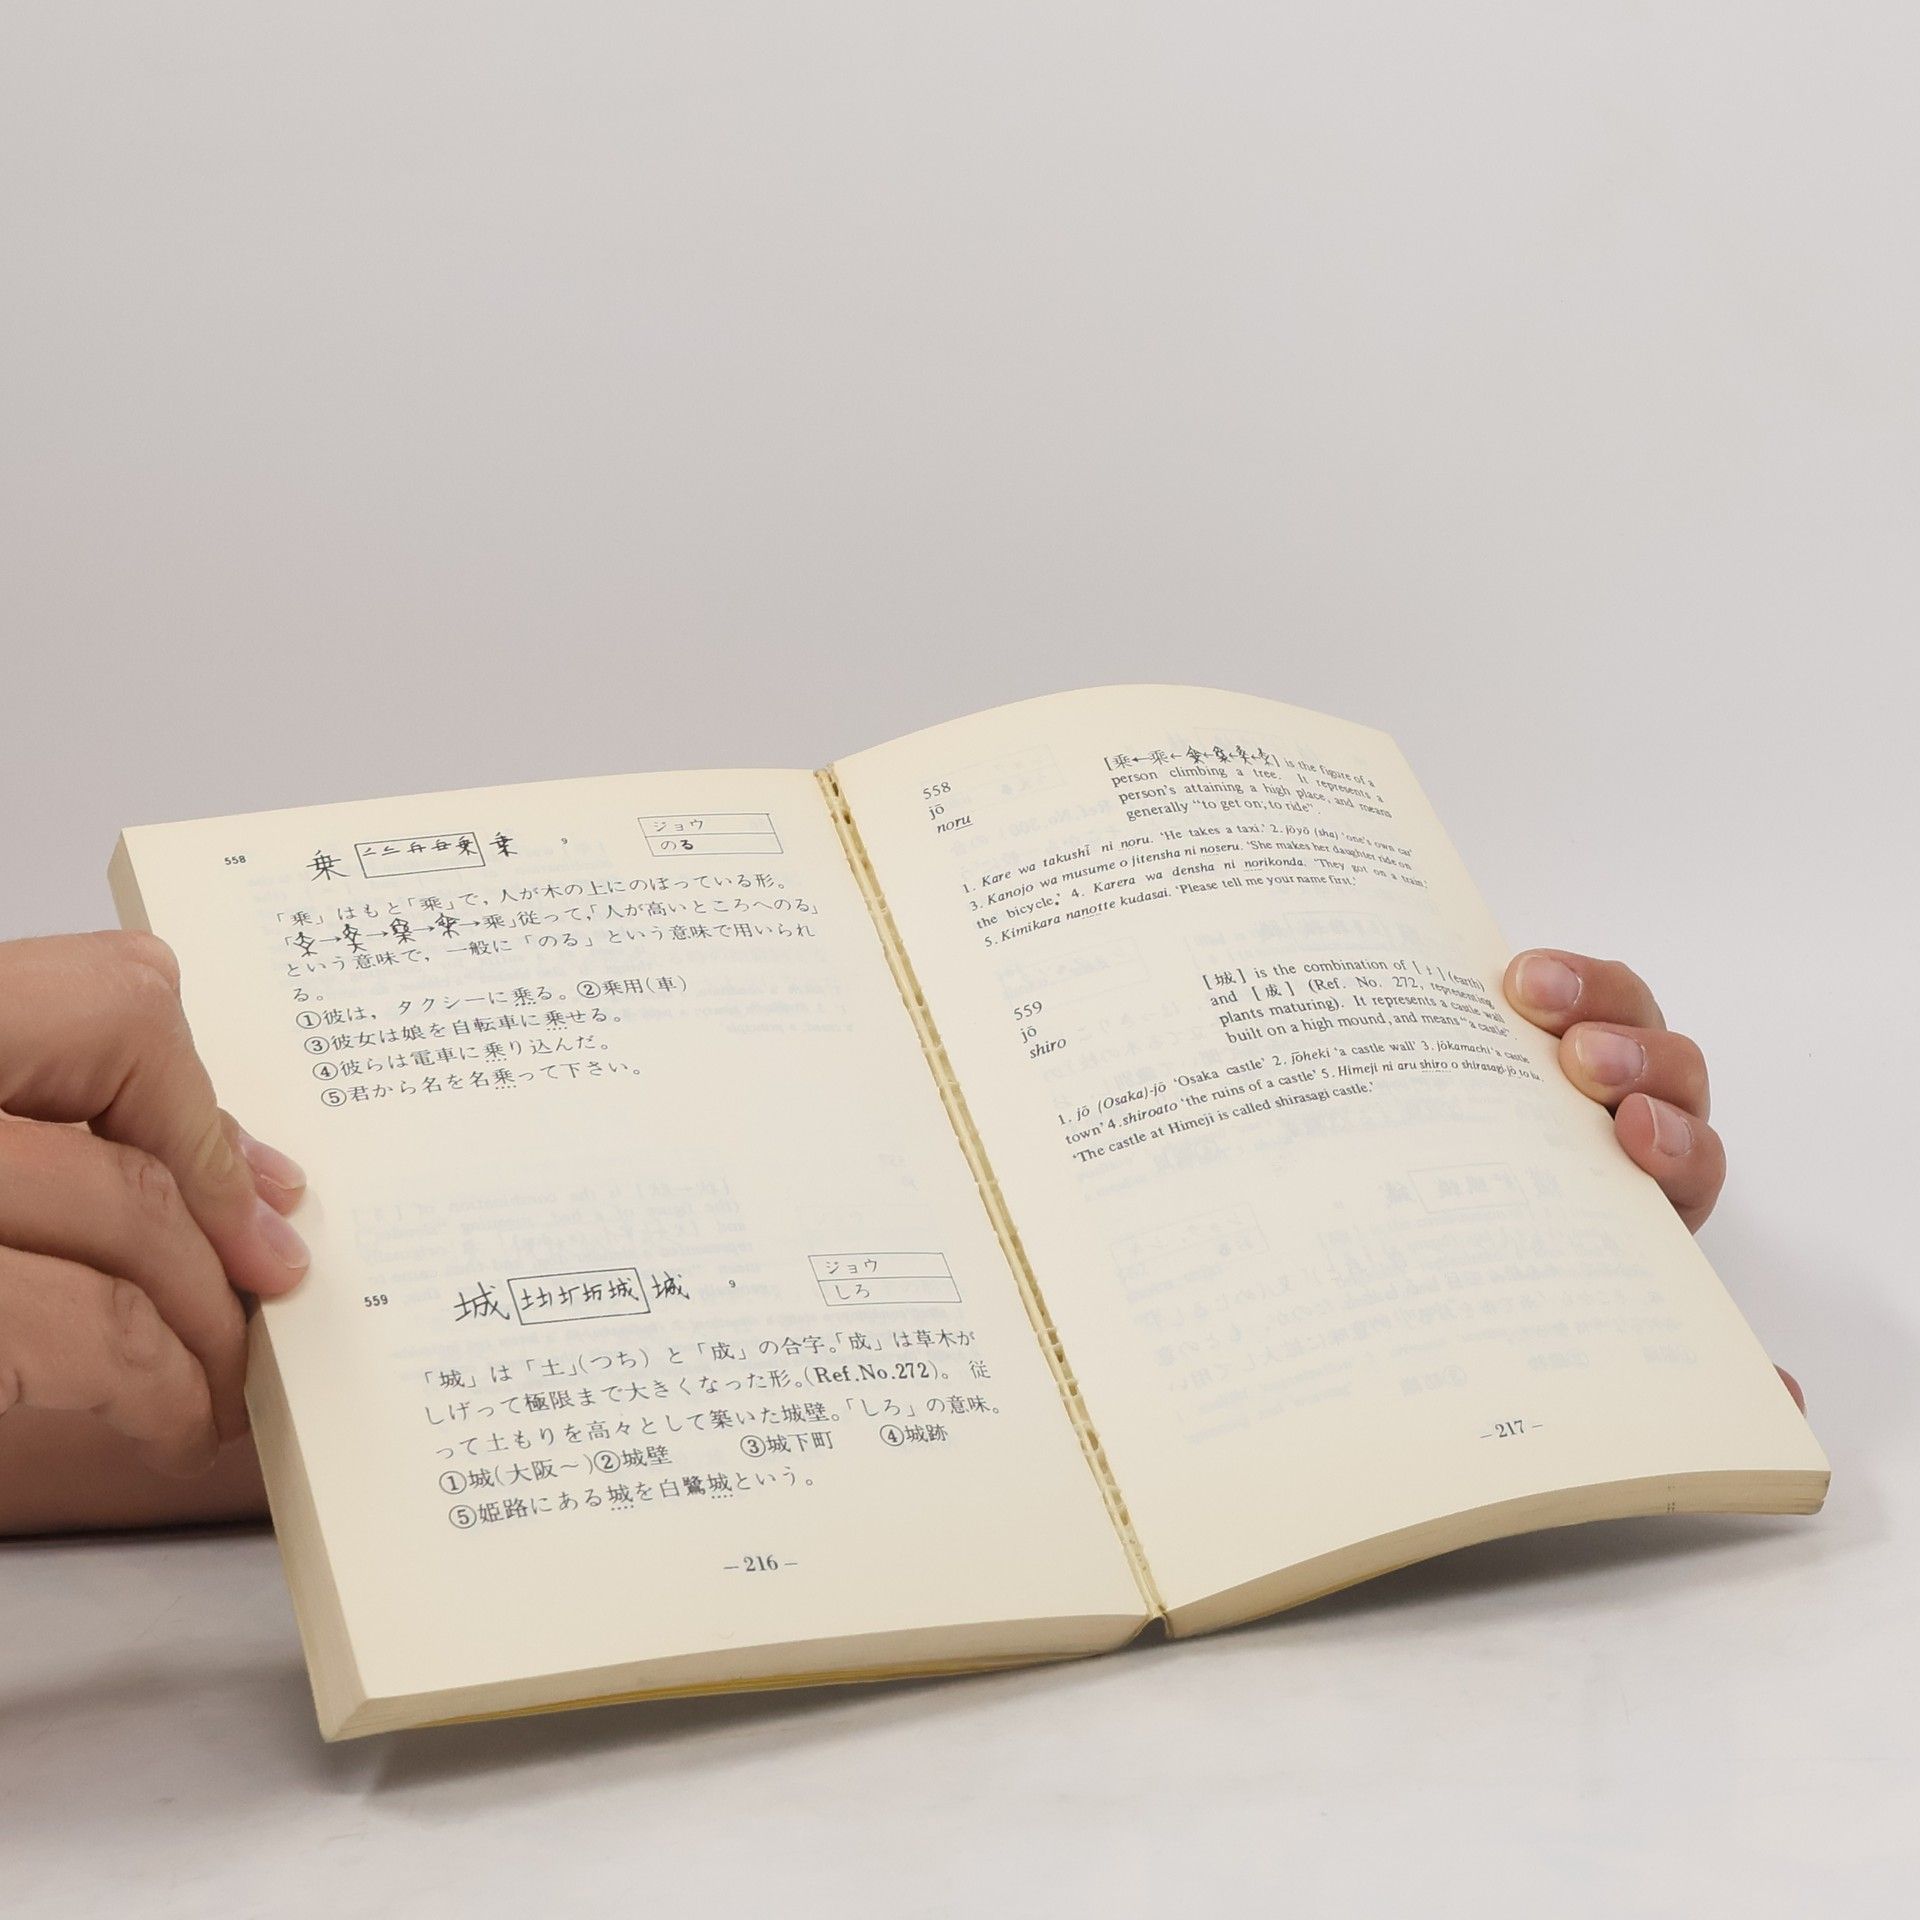 558
乗
乗
9
ジョウ
のる
「乗」はもと「乘」で，人が木の上にのぼっている形。
「→→→→乗」従って，「人が高いところへのる」
という意味で，一般に「のる」という意味で用いられ
る。
①彼は，タクシーに乗る。②乗用(車)
③彼女は娘を自転車に乗せる。
④彼らは電車に乗り込んだ。
⑤君から名を名乗って下さい。
559
城
城
9
ジョウ
しろ
「城」は「土」(つち）と「成」の合字。「成」は草木が
しげって極限まで大きくなった形。(Ref.No.272)。従
って土もりを高々として築いた城壁。「しろ」の意味。
①城(大阪～)②城壁 ③城下町 ④城跡
⑤姫路にある城を白鷺城という。
—216—
558
jō
noru
[乗←乘←←←←] is the figure of a
person climbing a tree. It represents a
person's attaining a high place, and means
generally “to get on; to ride”.
1. Kare wa takushī ni noru. ‘He takes a taxi.’ 2. jōyō (sha) ‘one's own car’
3. Kanojo wa musume o jitensha ni noseru. ‘She makes her daughter ride on
the bicycle.’ 4. Karera wa densha ni norikonda. ‘They got on a train.’
5. Kimikara nanotte kudasai. ‘Please tell me your name first.’
559
jō
shiro
[城] is the combination of [土] (earth)
and [成] (Ref. No. 272, representing
plants maturing). It represents a castle wall
built on a high mound, and means “a castle”.
1. jō (Osaka)-jō ‘Osaka castle’ 2. jōheki ‘a castle wall’ 3. jōkamachi ‘a castle
town’ 4. shiroato ‘the ruins of a castle’ 5. Himeji ni aru shiro o shirasagi-jō to iu.
‘The castle at Himeji is called shirasagi castle.’
—217—